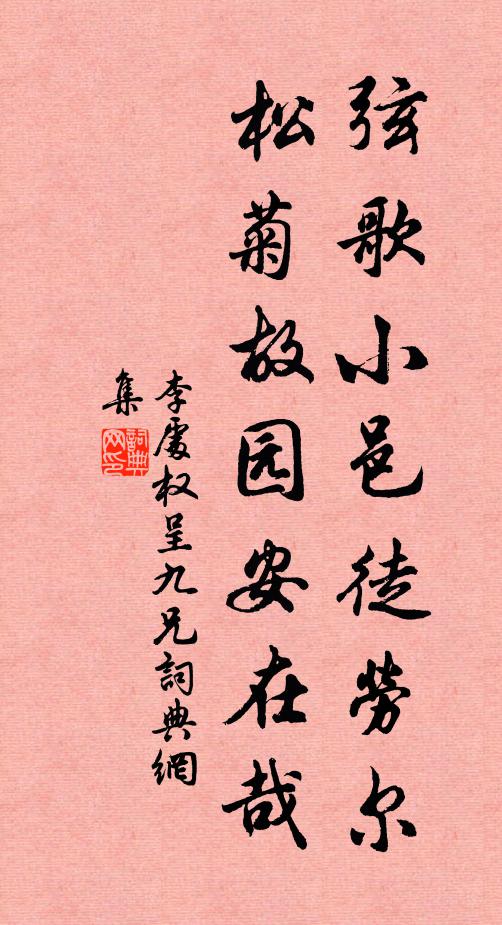 弦歌小邑徒勞尔
松菊故园安在哉
李處权呈九兄詞典網
集
詞典网印